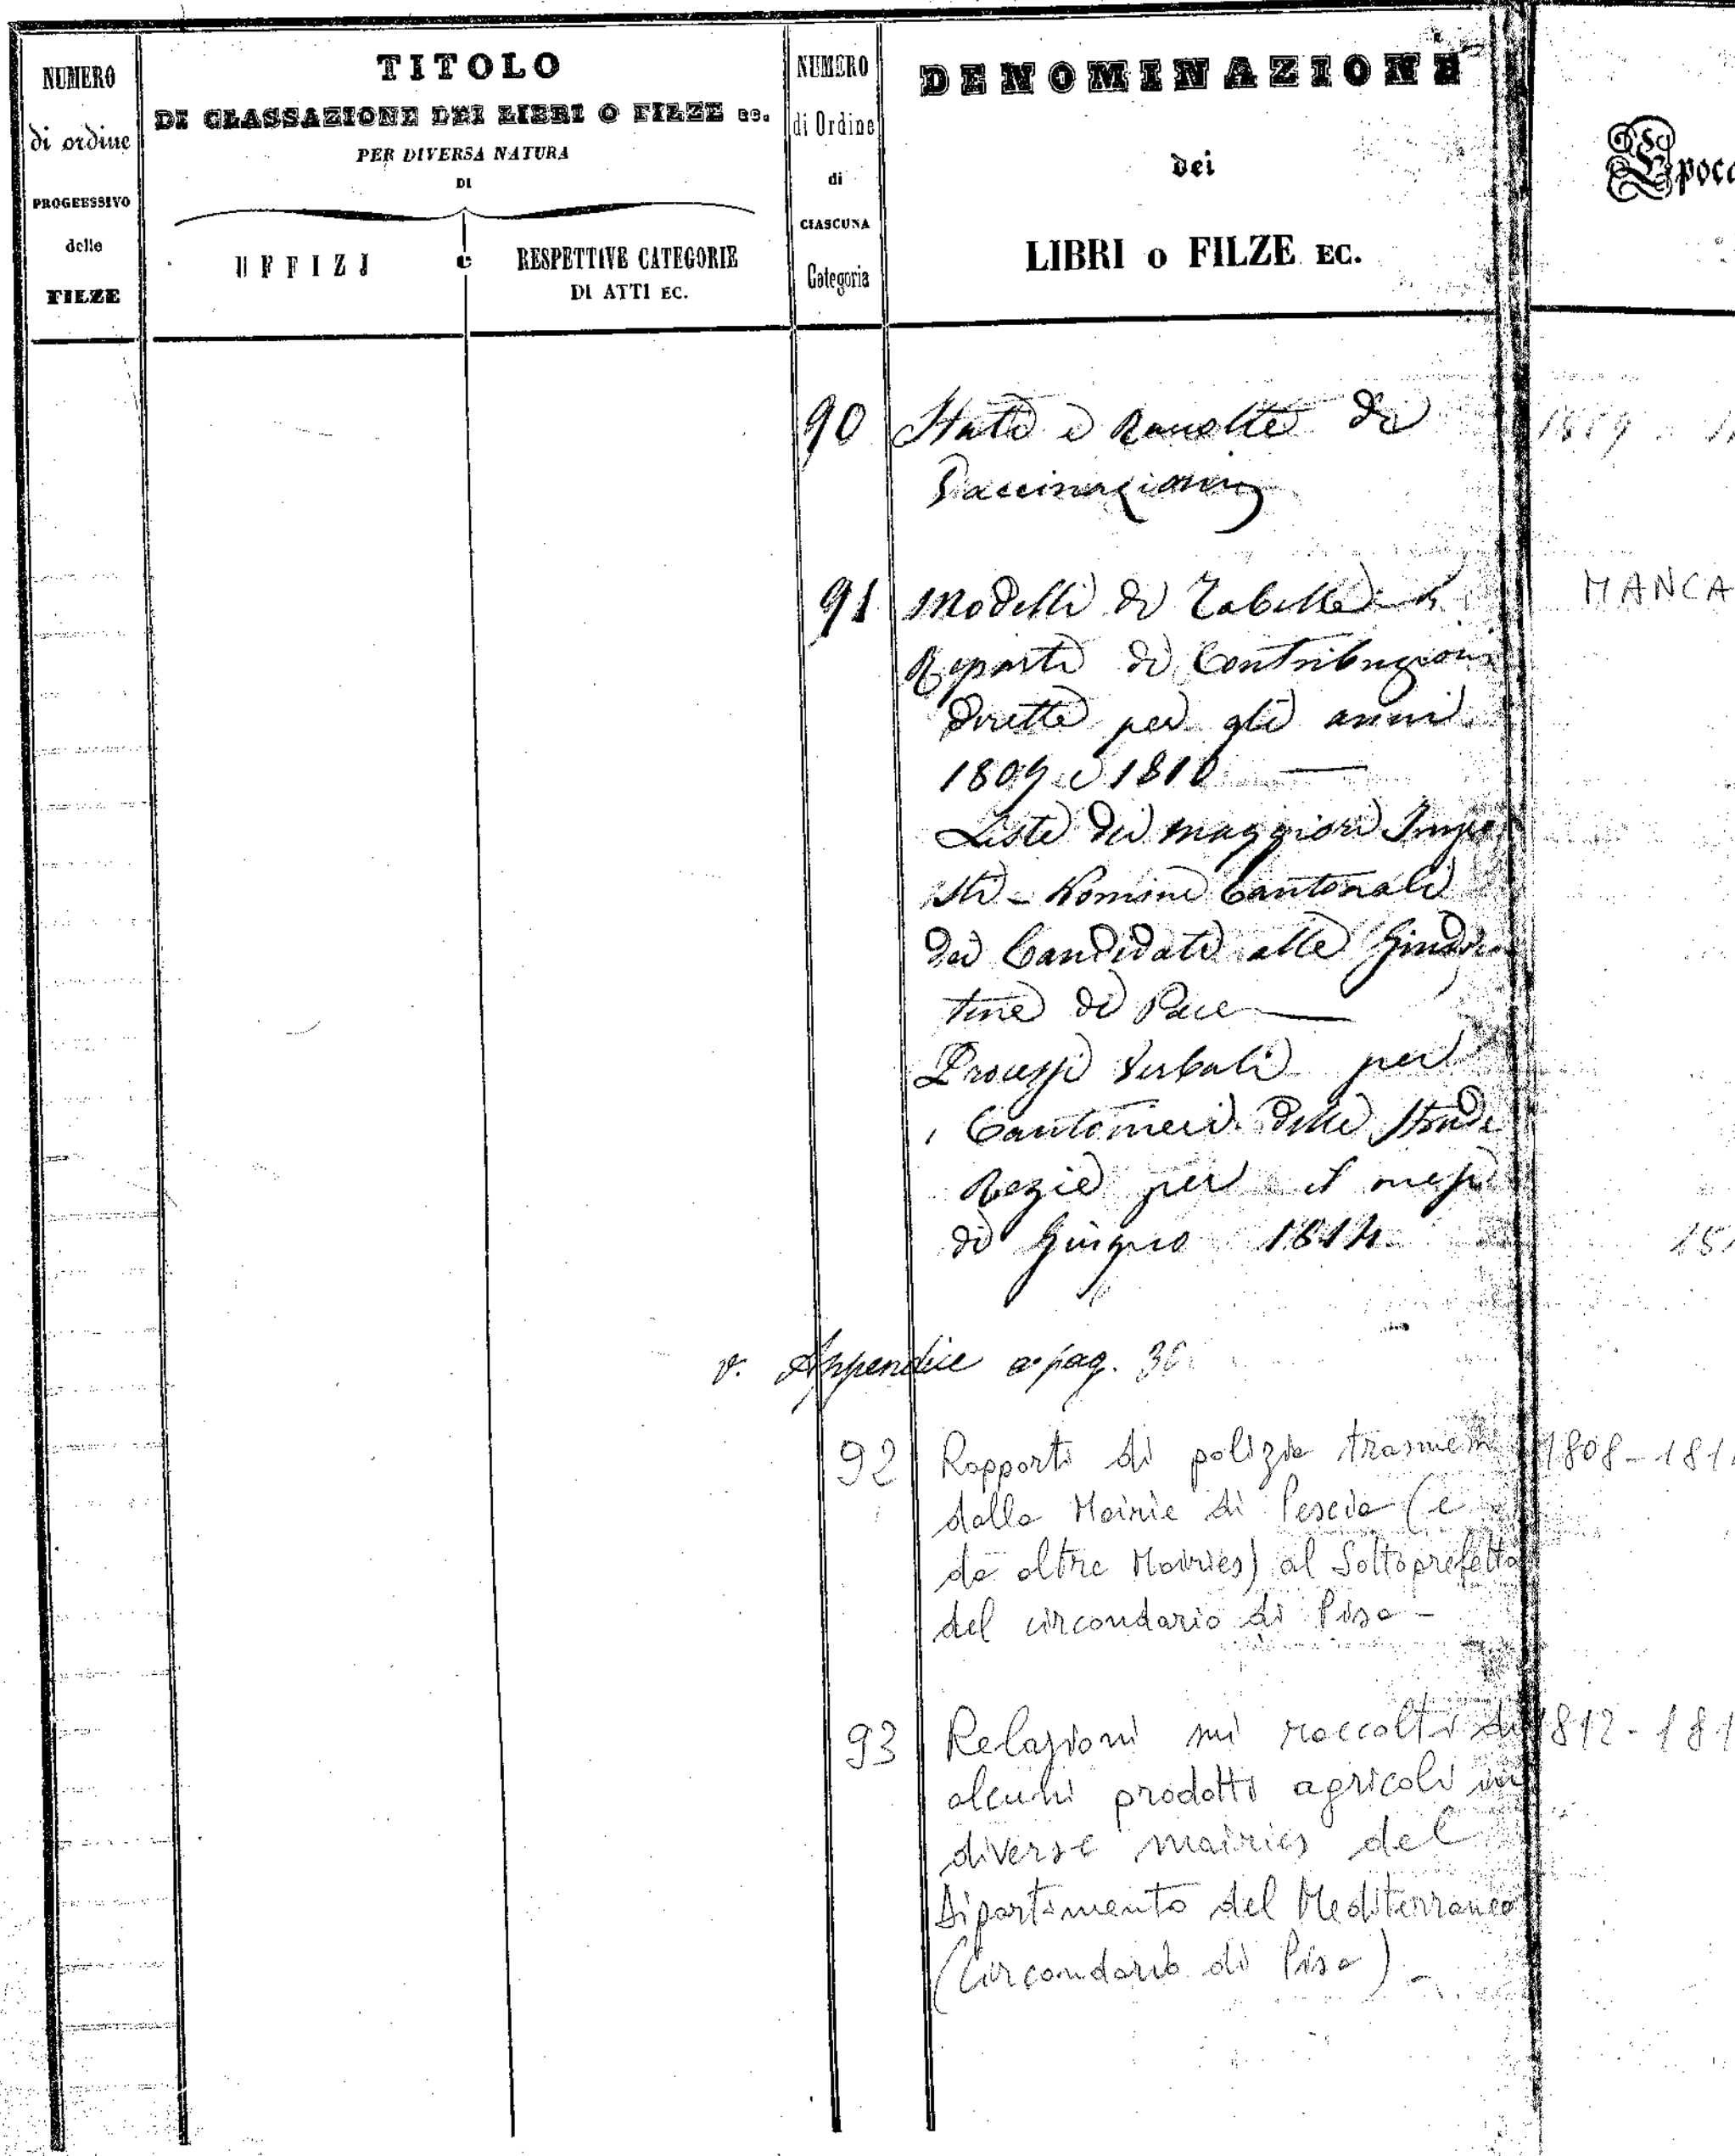 NUMERO
di ordine
PROGRESSIVO
delle
FILZE
TITOLO
DI CLASSAZIONE DEI LIBRI O FILZE ec.
PER DIVERSA NATURA
DI
UFFIZJ
e
RESPETTIVE CATEGORIE
DI ATTI EC.
NUMERO
di Ordine
di
CIASCUNA
Categoria
DENOMINAZIONE
dei
LIBRI o FILZE EC.
Epoca
90 Stati e di
Vaccinazioni
91 Modelli di Tabelle MANCA
Reparti di Contribuzioni
dirette per gli anni
1809 e 1810 —
Liste dei maggiori Impo
sti - Nomine Cantonali
dei Candidati alle
di Pace —
Processi Verbali per
i Cantonieri delle Strade
Regie per il mese
di Giugno 1814
v. Appendice a pag. 30
92 Rapporti di polizia trasmessi 1808-181
dalla Mairie di Pescia (e
da altre Mairies) al Sottoprefetto
del circondario di Pisa -
93 Relazioni sui raccolti di 1812-181
alcuni prodotti agricoli in
diverse mairies del
Dipartimento del Mediterraneo
(Circondario di Pisa) -